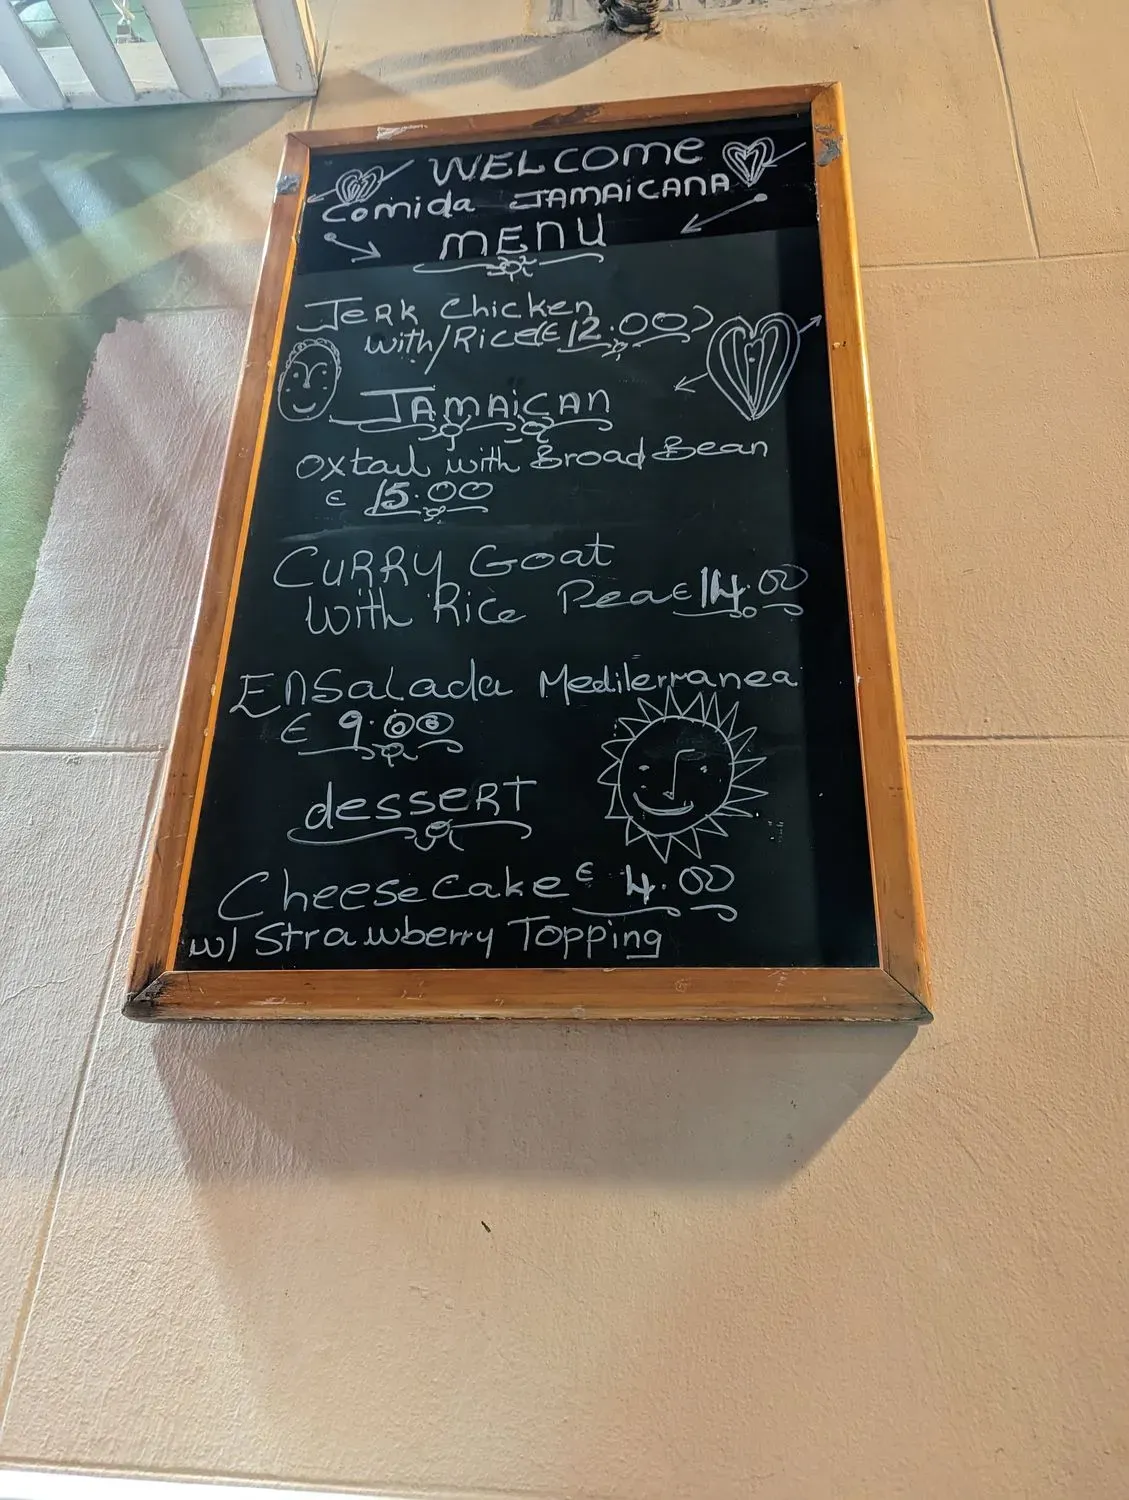 WELCOME
Comida JAMAICANA
MENU
JERK Chicken
with/Rice (€12.00)
JAMAICAN
Oxtail with Broad Bean
€ 15.00
CURRY Goat
With Rice Pea €14.00
ENSalada Mediterranea
€ 9.00
dessERT
CheeseCake € 4.00
w/ Strawberry Topping